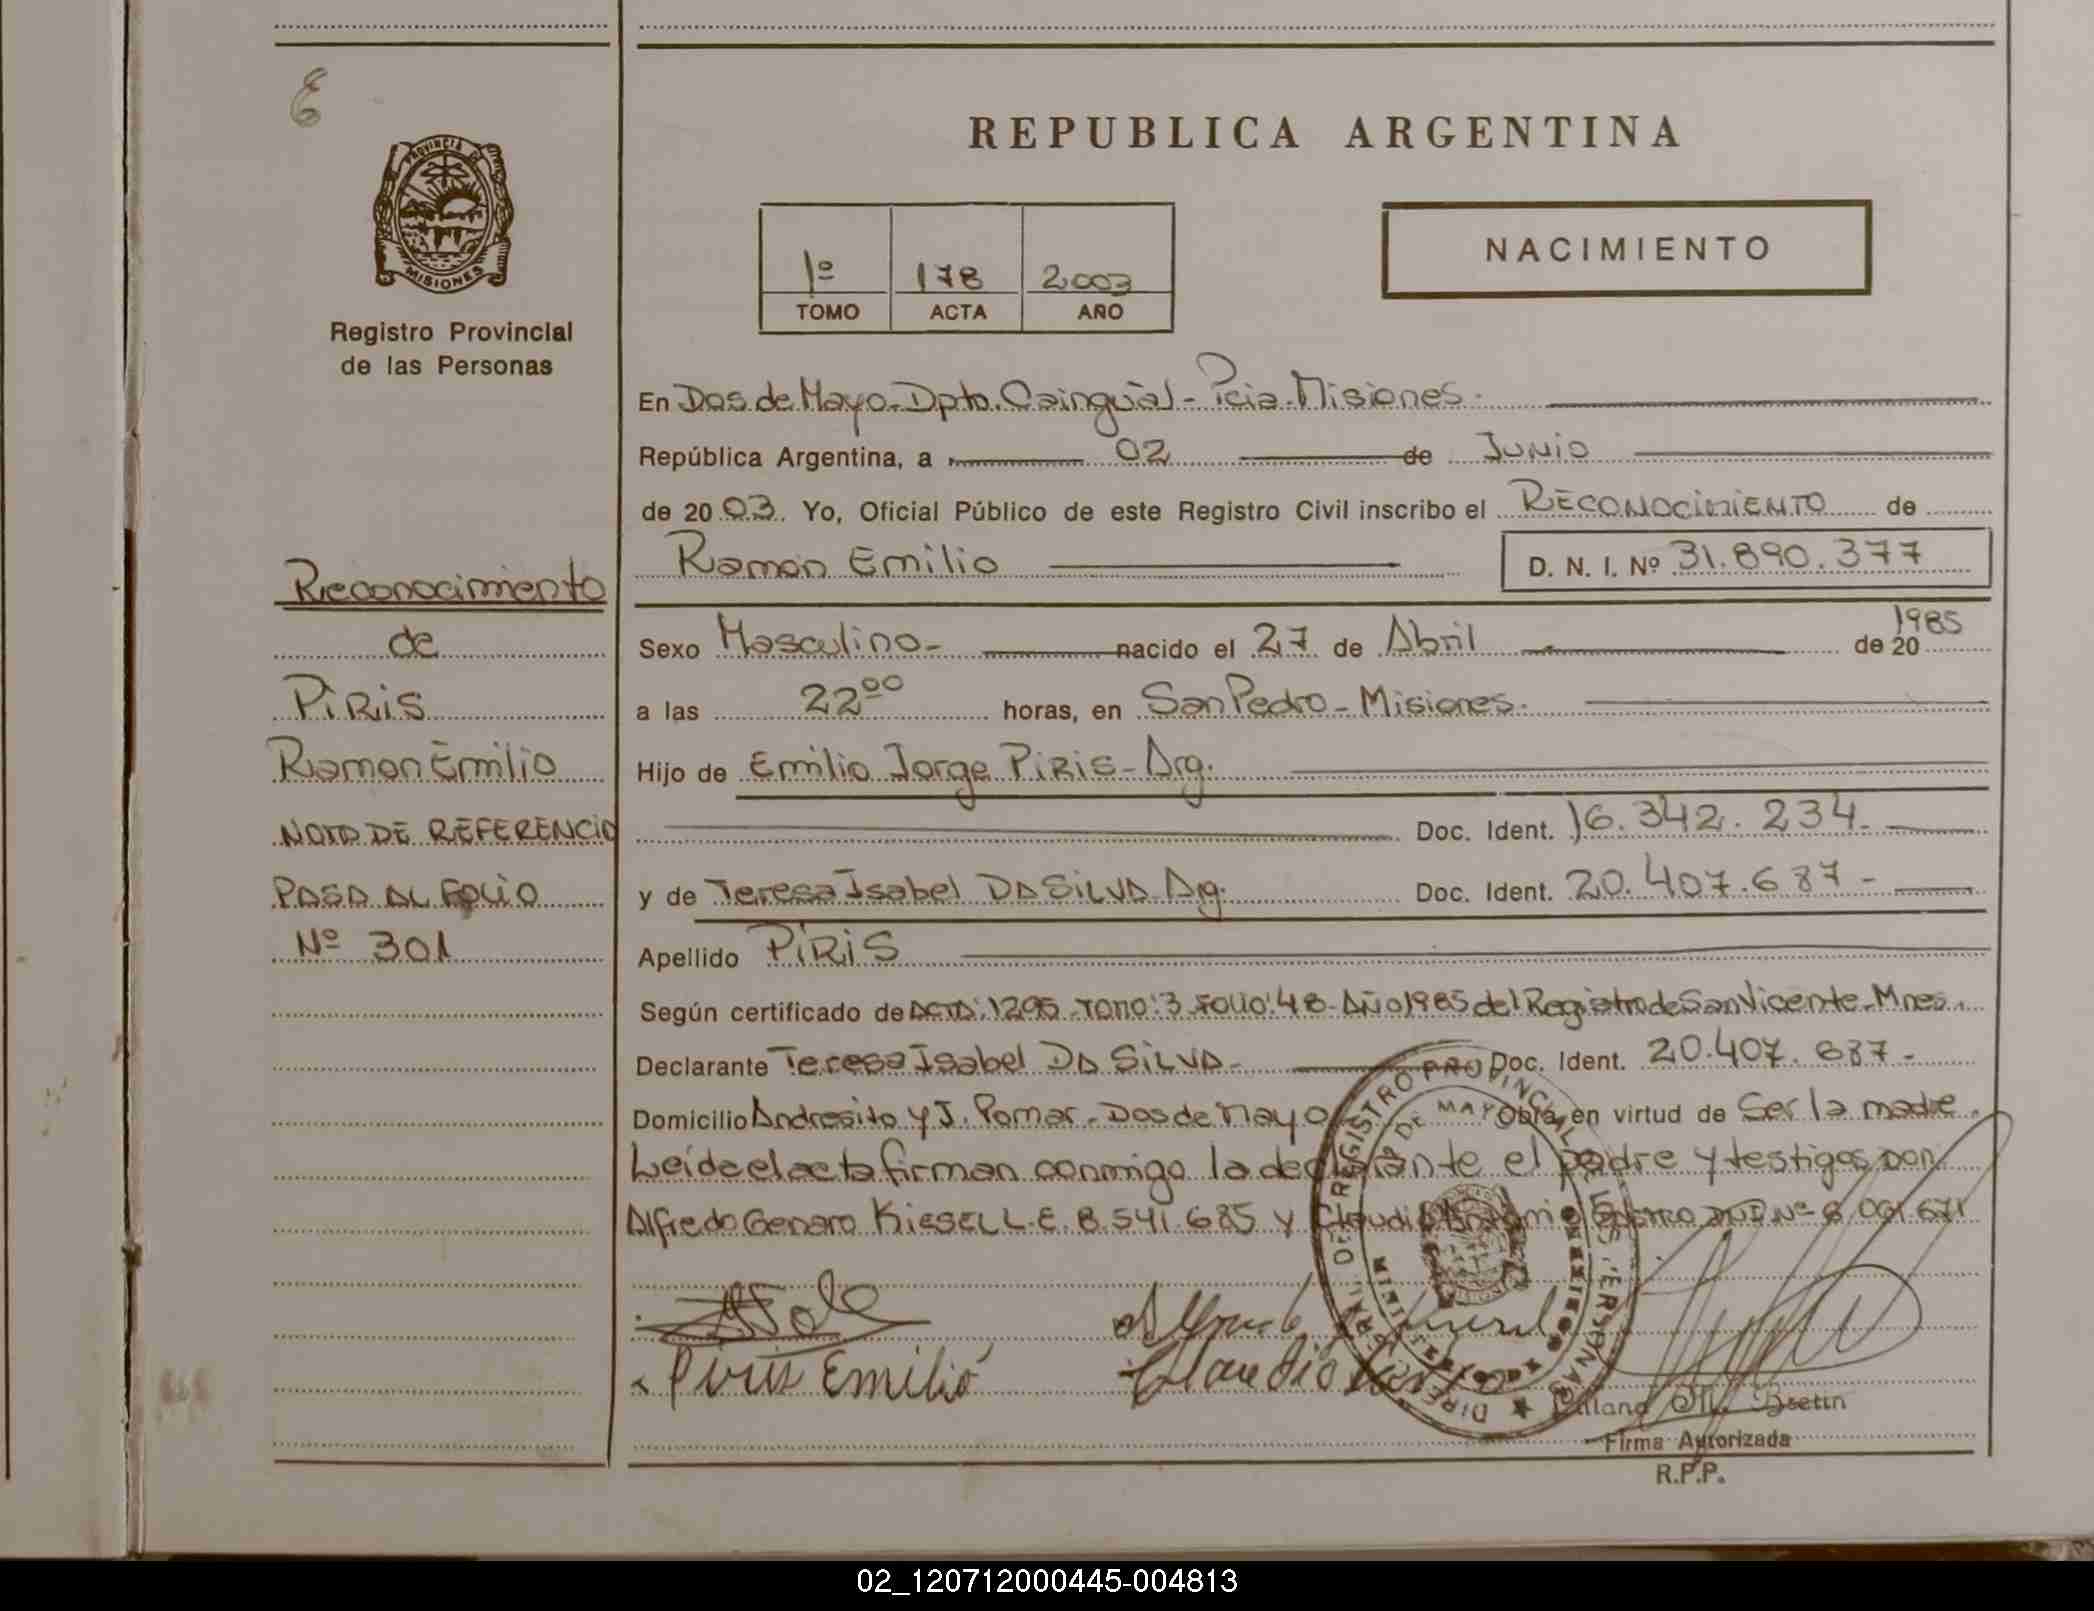 REPUBLICA ARGENTINA
PROVINCIA DE
MISIONES
Registro Provincial
de las Personas
1º 178 2003
TOMO ACTA AÑO
NACIMIENTO
Reconocimiento
de
PIRIS
Ramon Emilio
NOTA DE REFERENCIA
PASA AL FOLIO
Nº 301
En Dos de Mayo - Dpto. Cainguás - Pcia. Misiones.
República Argentina, a 02 de Junio
de 2003. Yo, Oficial Público de este Registro Civil inscribo el RECONOCIMIENTO de
Ramon Emilio D. N. I. Nº 31.890.377
Sexo Masculino - nacido el 27 de Abril de 20 1985
a las 22⁰⁰ horas, en San Pedro - Misiones.
Hijo de Emilio Jorge PIRIS - Arg.
Doc. Ident. 16.342.234.
y de Teresa Isabel DA SILVA Arg. Doc. Ident. 20.407.687 -
Apellido PIRIS
Según certificado de ACTA: 1295 - TOMO: 3 - FOLIO: 48 - AÑO 1985 del Registro de San Vicente - Mnes.
Declarante Teresa Isabel DA SILVA - Doc. Ident. 20.407.687 -
Domicilio Andresito y J. Pomar - Dos de Mayo Obra en virtud de Ser la madre.
Leída el acta firman conmigo la declarante el padre y testigos Don
Alfredo Genaro KIESEL L.E. 8.541.685 y Claudio
Piris Emilio
Claudio
Firma Autorizada
R.P.P.
02_120712000445-004813